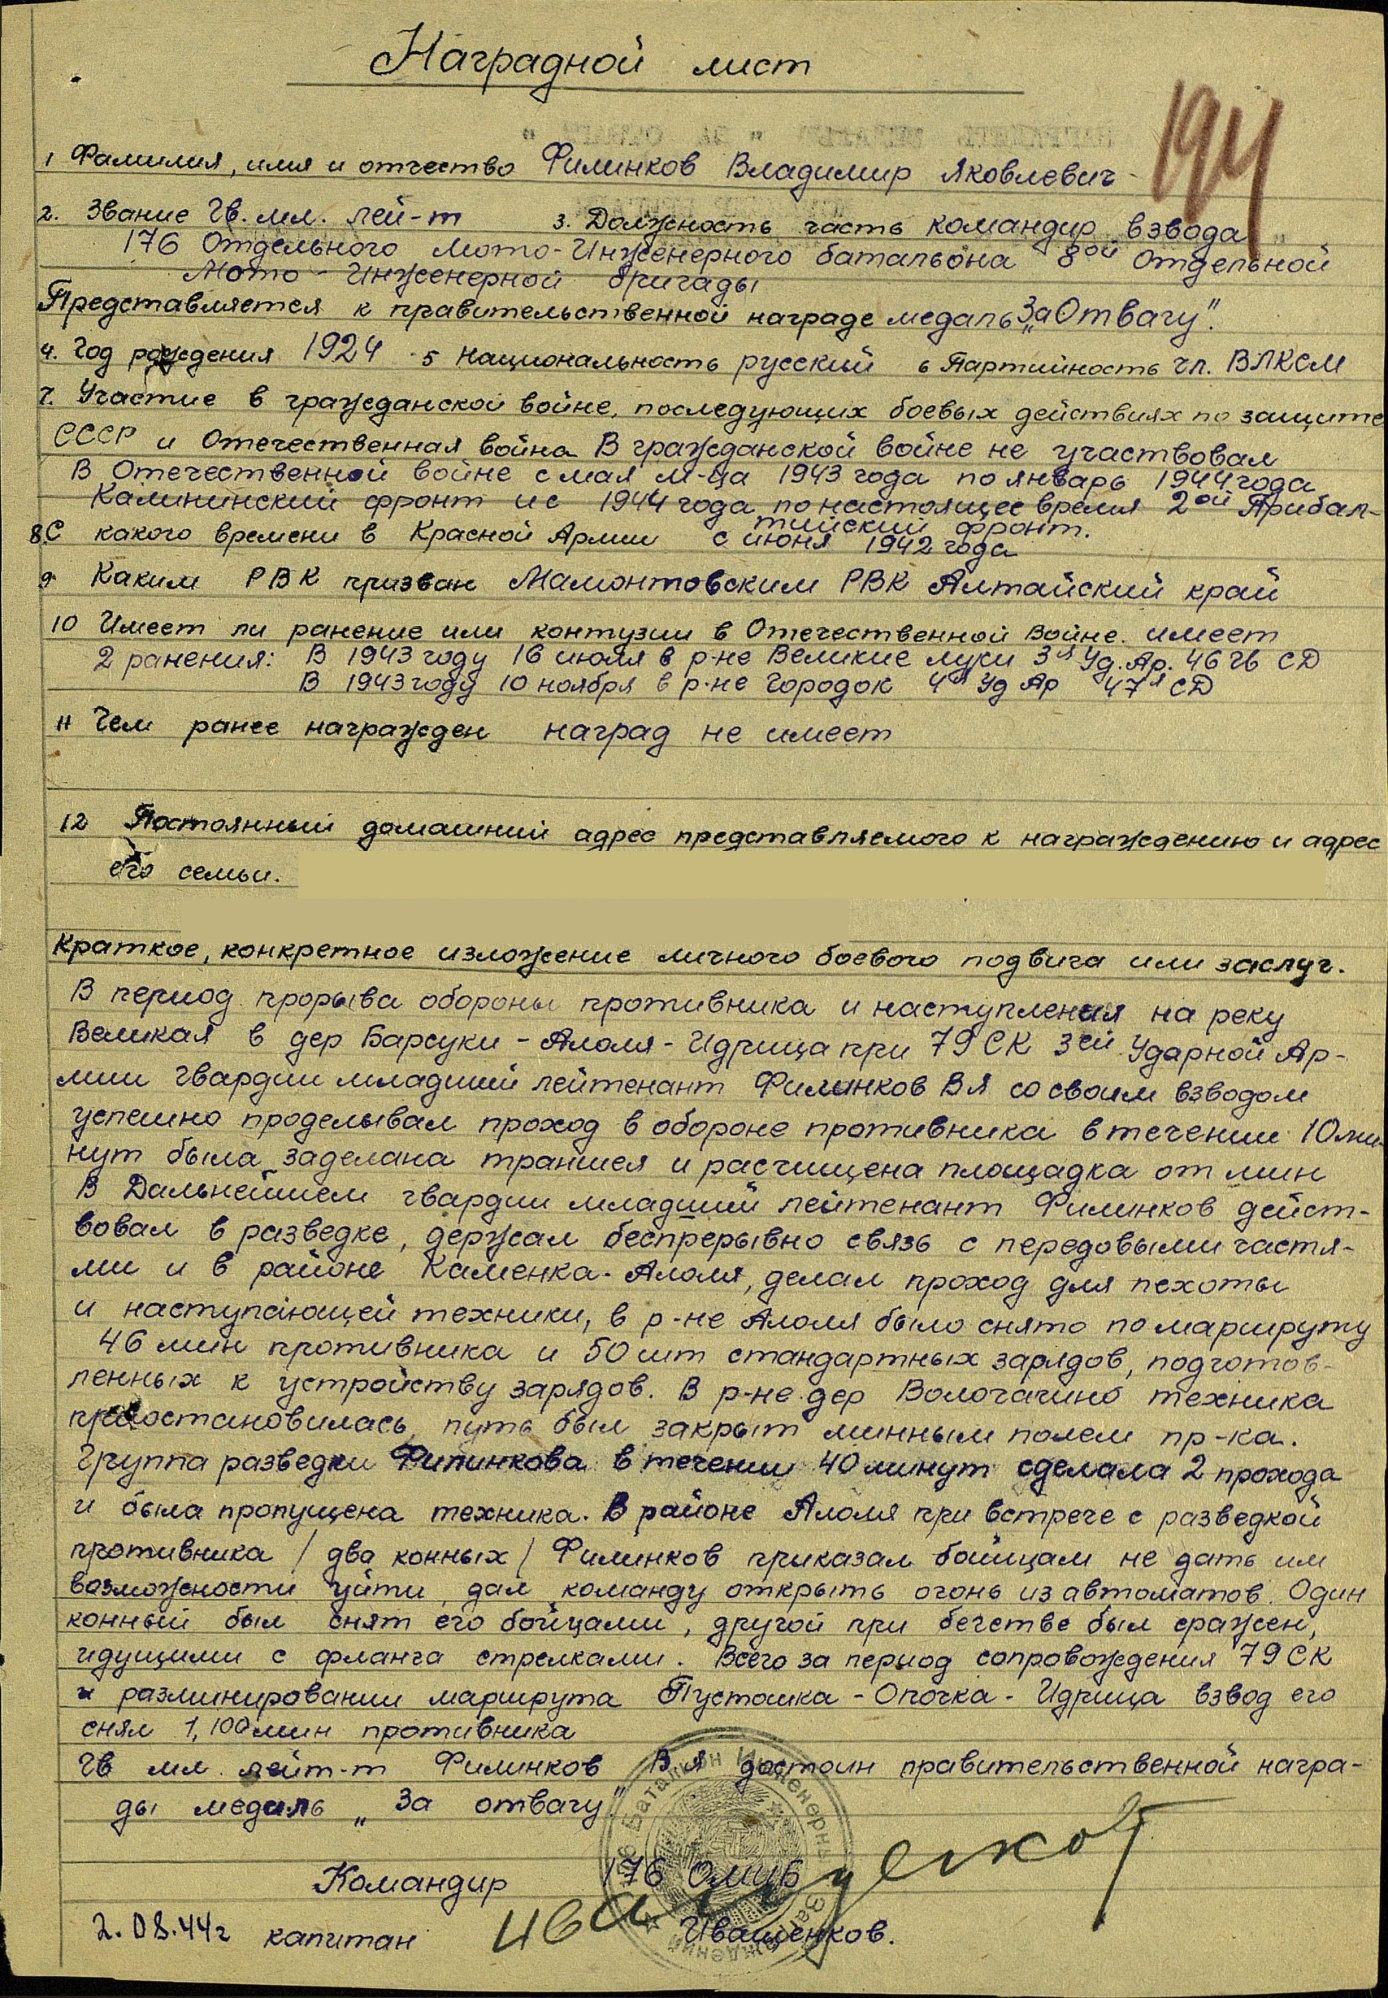 Наградной лист
194
1 Фамилия, имя и отчество Филинков Владимир Яковлевич
2. Звание Гв. мл. лей-т 3. Должность часть командир взвода
176 Отдельного Мото-Инженерного батальона 8ой Отдельной
Мото-Инженерной бригады
Представляется к правительственной награде медаль „За Отвагу".
4. Год рождения 1924 5 Национальность русский 6 Партийность чл. ВЛКСМ
7. Участие в гражданской войне, последующих боевых действиях по защите
СССР и Отечественная война В гражданской войне не участвовал
В Отечественной войне с мая м-ца 1943 года по январь 1944 года
Калининский фронт и с 1944 года по настоящее время 2ой Прибал-
тийский фронт.
8. С какого времени в Красной Армии с июня 1942 года
9 Каким РВК призван Мамонтовским РВК Алтайский край
10 Имеет ли ранение или контузии в Отечественной Войне. имеет
2 ранения: В 1943 году 16 июля в р-не Великие луки 3я Уд. Ар. 46 гв СД
В 1943 году 10 ноября в р-не Городок 4я Уд Ар 47я СД
11 Чем ранее награжден наград не имеет
12 Постоянный домашний адрес представляемого к награждению и адрес
его семьи.
Краткое, конкретное изложение личного боевого подвига или заслуг.
В период прорыва обороны противника и наступления на реку
Великая в дер Барсуки - Алоля - Идрица при 79 СК 3ей Ударной Ар-
мии гвардии младший лейтенант Филинков В Я со своим взводом
успешно проделывал проход в обороне противника в течении 10 ми-
нут была заделана траншея и расчищена площадка от мин
В Дальнейшем гвардии младший лейтенант Филинков дейст-
вовал в разведке, держал беспрерывно связь с передовыми частя-
ми и в районе Каменка - Алоля, делал проход для пехоты
и наступающей техники, в р-не Алоля было снято по маршруту
46 мин противника и 50 шт стандартных зарядов, подготов-
ленных к устройству зарядов. В р-не дер Вологачино техника
приостановилась, путь был закрыт минным полем пр-ка.
Группа разведки Филинкова в течении 40 минут сделала 2 прохода
и была пропущена техника. В районе Алоля при встрече с разведкой
противника / два конных / Филинков приказал бойцам не дать им
возможности уйти, дал команду открыть огонь из автоматов. Один
конный был снят его бойцами, другой при бегстве был сражен,
идущими с фланга стрелками. Всего за период сопровождения 79 СК
и разминировании маршрута Пустошка - Опочка - Идрица взвод его
снял 1,100 мин противника
Гв мл. лейт-т Филинков В Я достоин правительственной награ-
ды медаль „За отвагу"
Командир 176 ОМИБ
2.08.44г капитан Иващенков.
Иващенков